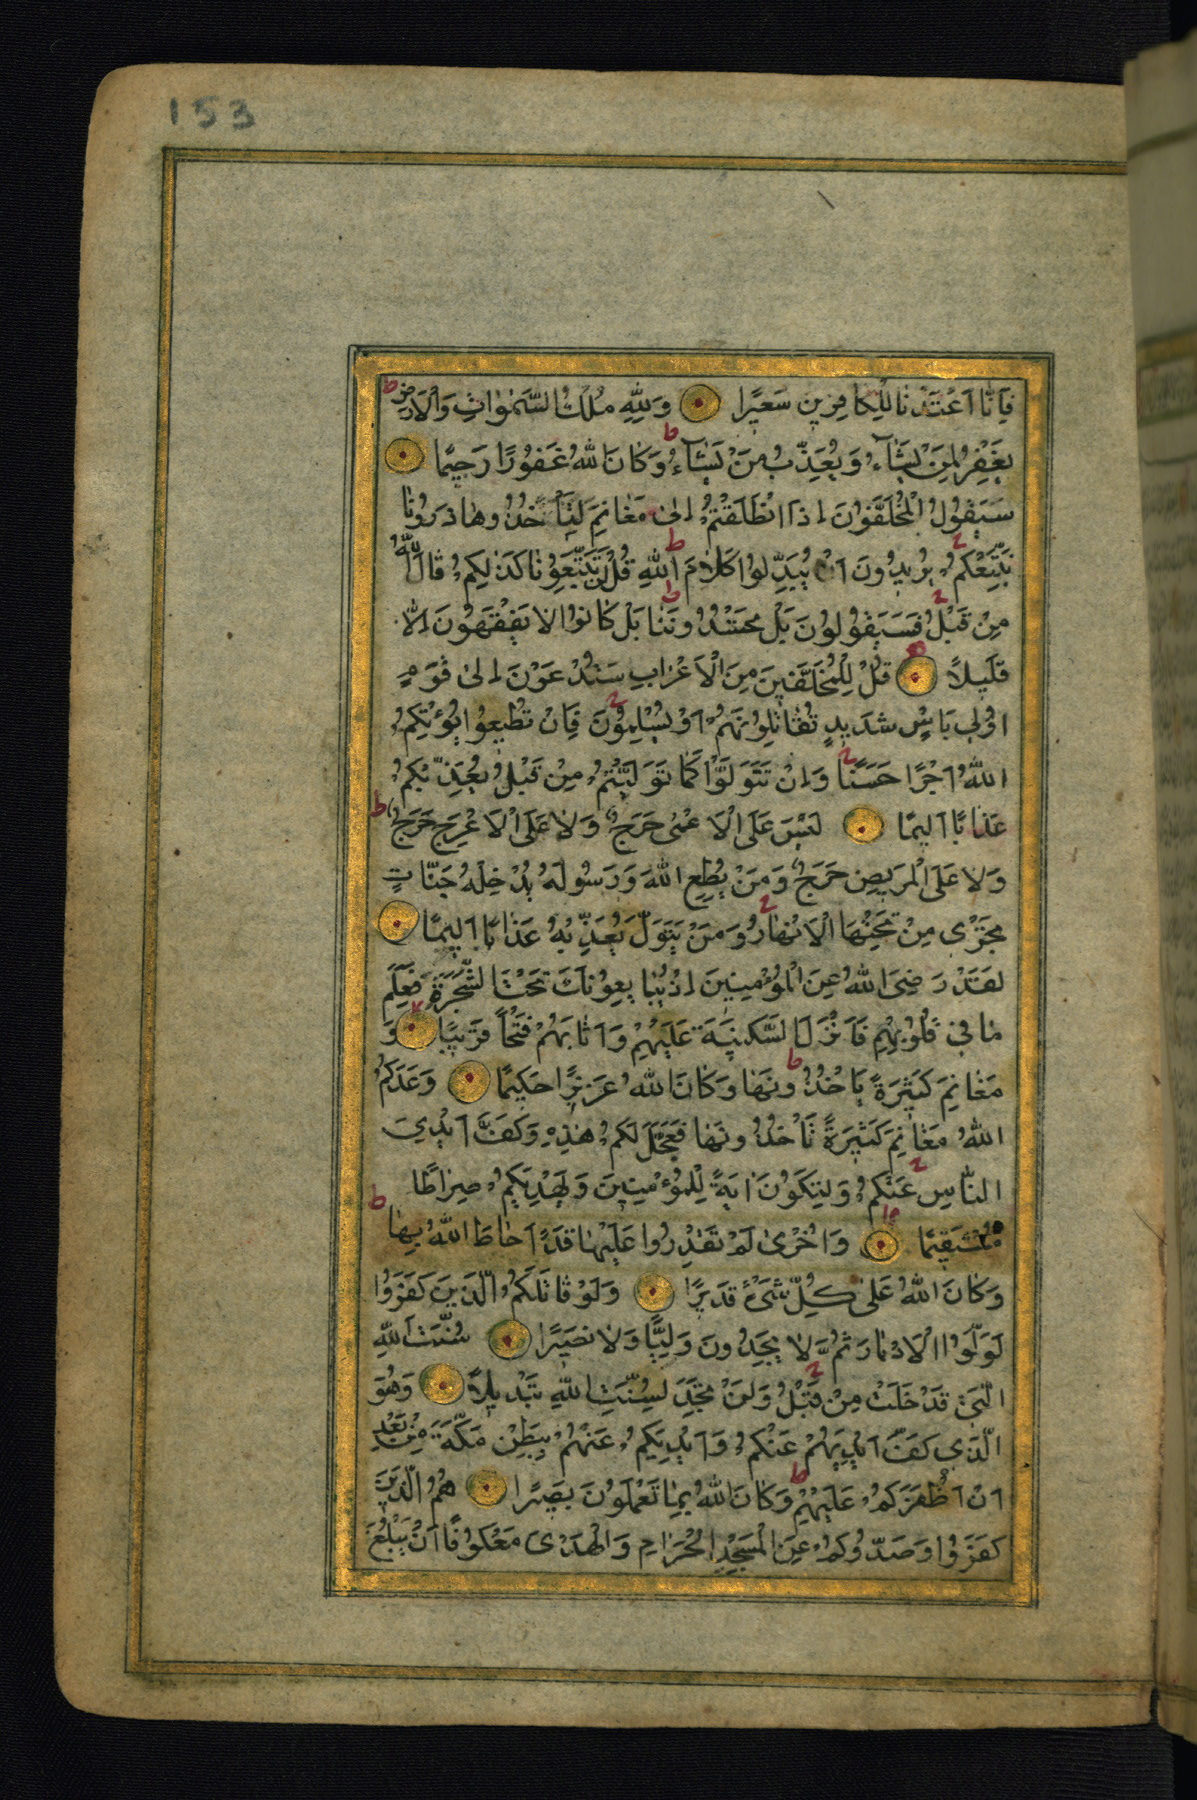 153
فَاِنَّا اَعْتَدْنَا لِلْكَافِرِينَ سَعِيرًا وَلِلّٰهِ مُلْكُ السَّمٰوَاتِ وَالْاَرْضِ ط
يَغْفِرُ لِمَنْ يَشَآءُ وَيُعَذِّبُ مَنْ يَشَآءُ ط وَكَانَ اللّٰهُ غَفُورًا رَحِيمًا
سَيَقُولُ الْمُخَلَّفُونَ اِذَا انْطَلَقْتُمْ اِلٰى مَغَانِمَ لِتَأْخُذُوهَا ذَرُونَا
نَتَّبِعْكُمْ ج يُرِيدُونَ اَنْ يُبَدِّلُوا كَلَامَ اللّٰهِ ط قُلْ لَنْ تَتَّبِعُونَا كَذٰلِكُمْ قَالَ اللّٰهُ
مِنْ قَبْلُ ج فَسَيَقُولُونَ بَلْ تَحْسُدُونَنَا ط بَلْ كَانُوا لَا يَفْقَهُونَ اِلَّا
قَلِيلًا قُلْ لِلْمُخَلَّفِينَ مِنَ الْاَعْرَابِ سَتُدْعَوْنَ اِلٰى قَوْمٍ
اُولِي بَاْسٍ شَدِيدٍ تُقَاتِلُونَهُمْ اَوْ يُسْلِمُونَ ج فَاِنْ تُطِيعُوا يُؤْتِكُمُ
اللّٰهُ اَجْرًا حَسَنًا ج وَاِنْ تَتَوَلَّوْا كَمَا تَوَلَّيْتُمْ مِنْ قَبْلُ يُعَذِّبْكُمْ
عَذَابًا اَلِيمًا لَيْسَ عَلَى الْاَعْمٰى حَرَجٌ وَلَا عَلَى الْاَعْرَجِ حَرَجٌ ط
وَلَا عَلَى الْمَرِيضِ حَرَجٌ وَمَنْ يُطِعِ اللّٰهَ وَرَسُولَهُ يُدْخِلْهُ جَنَّاتٍ
تَجْرِى مِنْ تَحْتِهَا الْاَنْهَارُ ج وَمَنْ يَتَوَلَّ يُعَذِّبْهُ عَذَابًا اَلِيمًا
لَقَدْ رَضِىَ اللّٰهُ عَنِ الْمُؤْمِنِينَ اِذْ يُبَايِعُونَكَ تَحْتَ الشَّجَرَةِ فَعَلِمَ
مَا فِى قُلُوبِهِمْ فَاَنْزَلَ السَّكِينَةَ عَلَيْهِمْ وَاَثَابَهُمْ فَتْحًا قَرِيبًا وَ
مَغَانِمَ كَثِيرَةً يَاْخُذُونَهَا ط وَكَانَ اللّٰهُ عَزِيزًا حَكِيمًا وَعَدَكُمُ
اللّٰهُ مَغَانِمَ كَثِيرَةً تَاْخُذُونَهَا فَعَجَّلَ لَكُمْ هٰذِهِ وَكَفَّ اَيْدِىَ
النَّاسِ عَنْكُمْ ج وَلِتَكُونَ اٰيَةً لِلْمُؤْمِنِينَ وَيَهْدِيَكُمْ صِرَاطًا
مُسْتَقِيمًا وَاُخْرٰى لَمْ تَقْدِرُوا عَلَيْهَا قَدْ اَحَاطَ اللّٰهُ بِهَا ط
وَكَانَ اللّٰهُ عَلٰى كُلِّ شَىْءٍ قَدِيرًا وَلَوْ قَاتَلَكُمُ الَّذِينَ كَفَرُوا
لَوَلَّوُا الْاَدْبَارَ ثُمَّ لَا يَجِدُونَ وَلِيًّا وَلَا نَصِيرًا سُنَّتَ اللّٰهِ
الَّتِى قَدْ خَلَتْ مِنْ قَبْلُ ج وَلَنْ تَجِدَ لِسُنَّتِ اللّٰهِ تَبْدِيلًا وَهُوَ
الَّذِى كَفَّ اَيْدِيَهُمْ عَنْكُمْ وَاَيْدِيَكُمْ عَنْهُمْ بِبَطْنِ مَكَّةَ مِنْ بَعْدِ
اَنْ اَظْفَرَكُمْ عَلَيْهِمْ ط وَكَانَ اللّٰهُ بِمَا تَعْمَلُونَ بَصِيرًا هُمُ الَّذِينَ
كَفَرُوا وَصَدُّوكُمْ عَنِ الْمَسْجِدِ الْحَرَامِ وَالْهَدْىَ مَعْكُوفًا اَنْ يَبْلُغَ